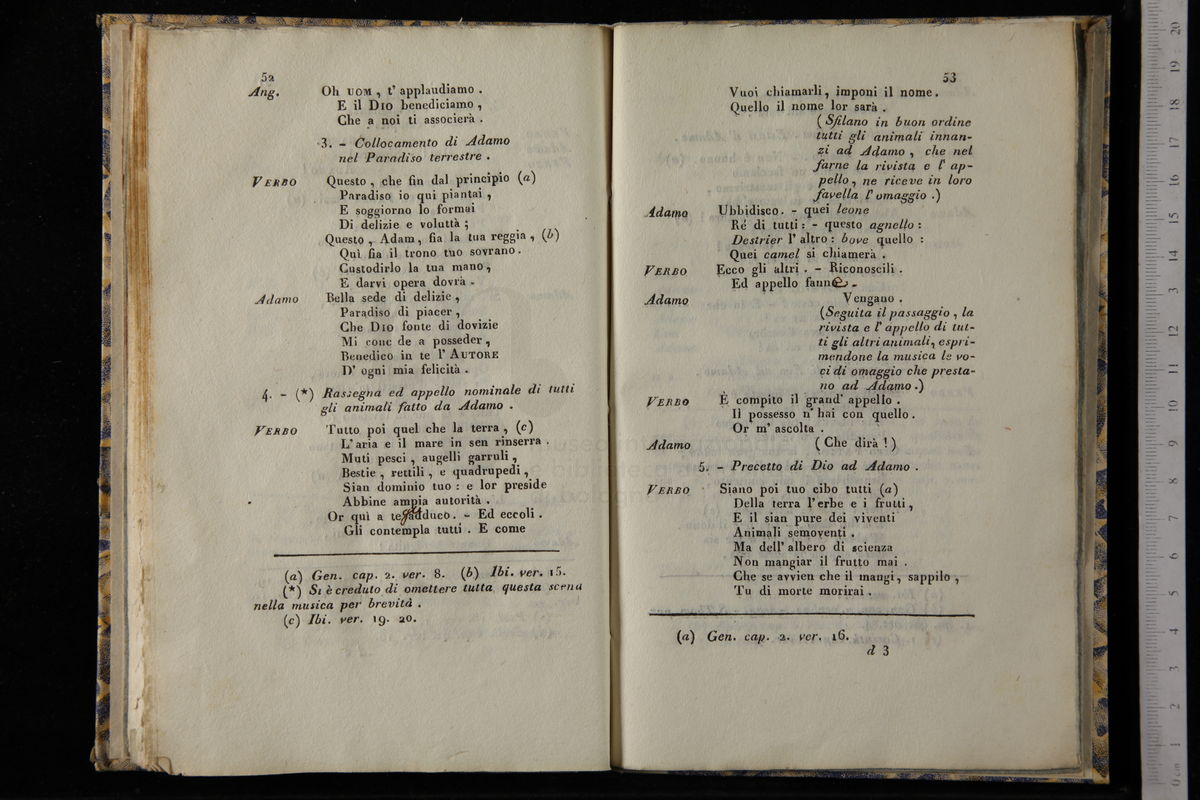 52
Ang. Oh UOM, t' applaudiamo.
E il DIO benediciamo,
Che a noi ti associerà.
3. - Collocamento di Adamo
nel Paradiso terrestre.
VERBO Questo, che fin dal principio (a)
Paradiso io qui piantai,
E soggiorno lo formai
Di delizie e voluttà;
Questo, Adam, fia la tua reggia, (b)
Quì fia il trono tuo sovrano.
Custodirlo la tua mano,
E darvi opera dovrà.
Adamo Bella sede di delizie,
Paradiso di piacer,
Che DIO fonte di dovizie
Mi conc de a posseder,
Benedico in te l' AUTORE
D' ogni mia felicità.
4. - (*) Rassegna ed appello nominale di tutti
gli animali fatto da Adamo.
VERBO Tutto poi quel che la terra, (c)
L' aria e il mare in sen rinserra.
Muti pesci, augelli garruli,
Bestie, rettili, e quadrupedi,
Sian dominio tuo: e lor preside
Abbine ampia autorità.
Or quì a te adduco. - Ed eccoli.
Gli contempla tutti. E come
(a) Gen. cap. 2. ver. 8. (b) Ibi. ver. 15.
(*) Si è creduto di omettere tutta questa scena
nella musica per brevità.
(c) Ibi. ver. 19. 20.
53
Vuoi chiamarli, imponi il nome.
Quello il nome lor sarà.
(Sfilano in buon ordine
tutti gli animali innan-
zi ad Adamo, che nel
farne la rivista e l' ap-
pello, ne riceve in loro
favella l' omaggio.)
Adamo Ubbidisco. - quei leone
Ré di tutti: - questo agnello:
Destrier l' altro: bove quello:
Quei camel si chiamerà.
VERBO Ecco gli altri. - Riconoscili.
Ed appello fanne.
Adamo Vengano.
(Seguita il passaggio, la
rivista e l' appello di tut-
ti gli altri animali, espri-
mendone la musica le vo-
ci di omaggio che presta-
no ad Adamo.)
VERBO È compito il grand' appello.
Il possesso n' hai con quello.
Or m' ascolta.
Adamo (Che dirà!)
5. - Precetto di Dio ad Adamo.
VERBO Siano poi tuo cibo tutti (a)
Della terra l' erbe e i frutti,
E il sian pure dei viventi
Animali semoventi.
Ma dell' albero di scienza
Non mangiar il frutto mai.
Che se avvien che il mangi, sappilo,
Tu di morte morirai.
(a) Gen. cap. 2. ver. 16.
d 3